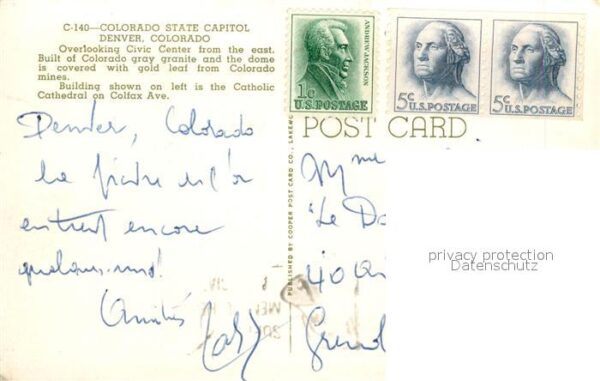 C-140—COLORADO STATE CAPITOL
DENVER, COLORADO
Overlooking Civic Center from the east.
Built of Colorado gray granite and the dome
is covered with gold leaf from Colorado
mines.
Building shown on left is the Catholic
Cathedral on Colfax Ave.
Denver, Colorado
entrent encore
quelques-uns!
Amitiés
PUBLISHED BY COOPER POST CARD CO., LAKEWO
ANDREW JACKSON
1c
U.S. POSTAGE
5c U.S. POSTAGE
5c U.S. POSTAGE
POST CARD
Mme
"Le Do
40 
Greno
privacy protection
Datenschutz